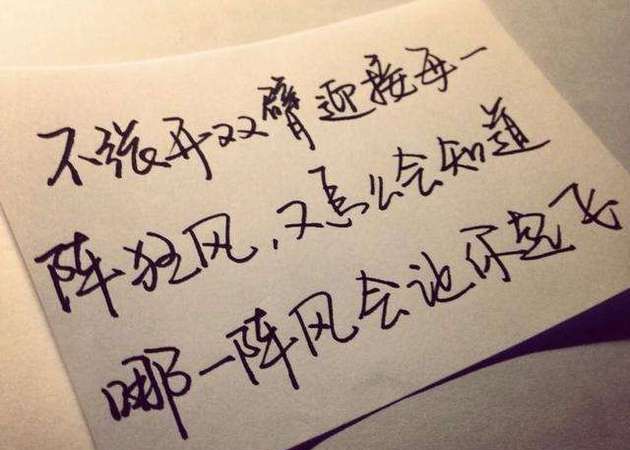 不张开双臂迎接每一
阵狂风,又怎么会知道
哪一阵风会让你起飞